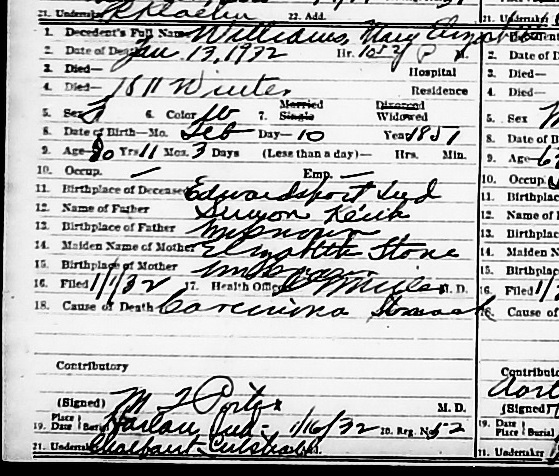 21. Undertaker 22. Add. 21. U
1. Decedent's Full Name Williams, Mary Elizabeth 1. Decedent
2. Date of Death Jan 13, 1932 Hr. 10 52 P M. 2. Date of D
3. Died— Hospital 3. Died—
4. Died— 1811 Winter Residence 4. Died—
5. Sex F 6. Color W 7. Married Single Divorced Widowed 5. Sex M
8. Date of Birth—Mo. Feb Day—10 Year 1851 8. Date of B
9. Age—80 Yrs 11 Mos. 3 Days (Less than a day)— Hrs. Min. 9. Age—67
10. Occup. — Emp. — 10. Occup.
11. Birthplace of Deceased Edwardsport Ind 11. Birthplac
12. Name of Father 12. Name of
13. Birthplace of Father Unknown 13. Birthplac
14. Maiden Name of Mother Elizabeth Stone 14. Maiden N
15. Birthplace of Mother Unknown 15. Birthplac
16. Filed 1/1/32 17. Health Officer M. D. 16. Filed 1/
18. Cause of Death Carcinoma Stomach 18. Cause of
Contributory Contributo
(Signed) M. D. (Signed)
19. Place Date Burial Harlan Ind. 1/16/32 20. Reg. No. 52 19. Place Date Burial
21. Undertaker 21. Undertaker